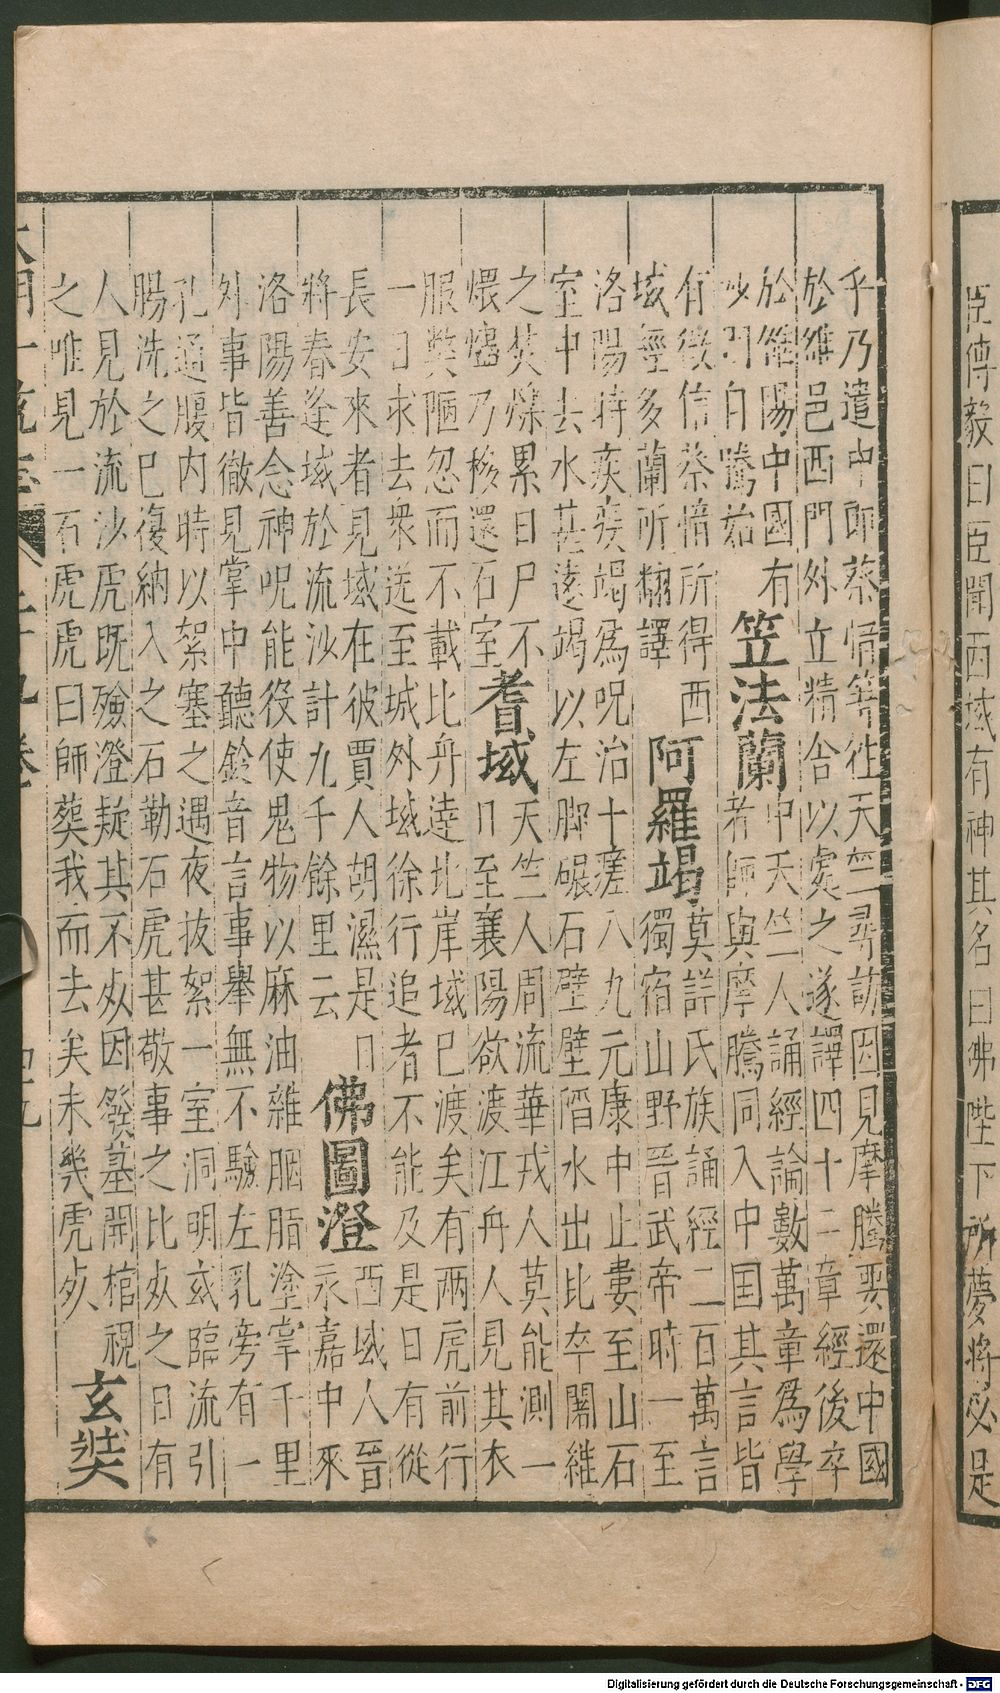 臣傅毅曰臣聞西域有神其名曰佛陛下所夢將必是
乎乃遣中郎蔡愔等往天竺尋訪因見摩騰要還中國
於雒邑西門外立精舍以處之遂譯四十二章經後卒
於雒陽中國有
沙門自騰始
竺法蘭
中天竺人誦經論數萬章爲學
者師與摩騰同入中囯其言皆
有徵信蔡愔所得西
域經多蘭所翻譯
阿羅竭
莫詳氏族誦經二百萬言
獨宿山野晉武帝時一至
洛陽時疾疫竭爲呪治十瘥八九元康中止婁至山石
室中去水甚遠竭以左脚碾石壁壁㾗水出比卒闍維
之焚燎累日尸不
煨燼乃移還石室
耆域
天竺人周流華戎人莫能測一
日至襄陽欲渡江舟人見其衣
服弊陋忽而不載比舟達北岸域已渡矣有兩虎前行
一日求去衆送至城外域徐行追者不能及是日有從
長安來者見域在彼賈人胡濕是日
將春逢域於流沙計九千餘里云
佛圖澄
西域人晉
永嘉中來
洛陽善念神呪能役使鬼物以麻油雜胭脂塗掌千里
外事皆徹見掌中聽鈴音言事舉無不驗左乳旁有一
孔通腹内時以絮塞之遇夜拔絮一室洞明或臨流引
腸洗之已復納入之石勒石虎甚敬事之比死之日有
人見於流沙虎既殮澄疑其不死因發墓開棺視
之唯見一石虎虎曰師葬我而去矣未幾虎死
玄奘
Digitalisierung gefördert durch die Deutsche Forschungsgemeinschaft - DFG